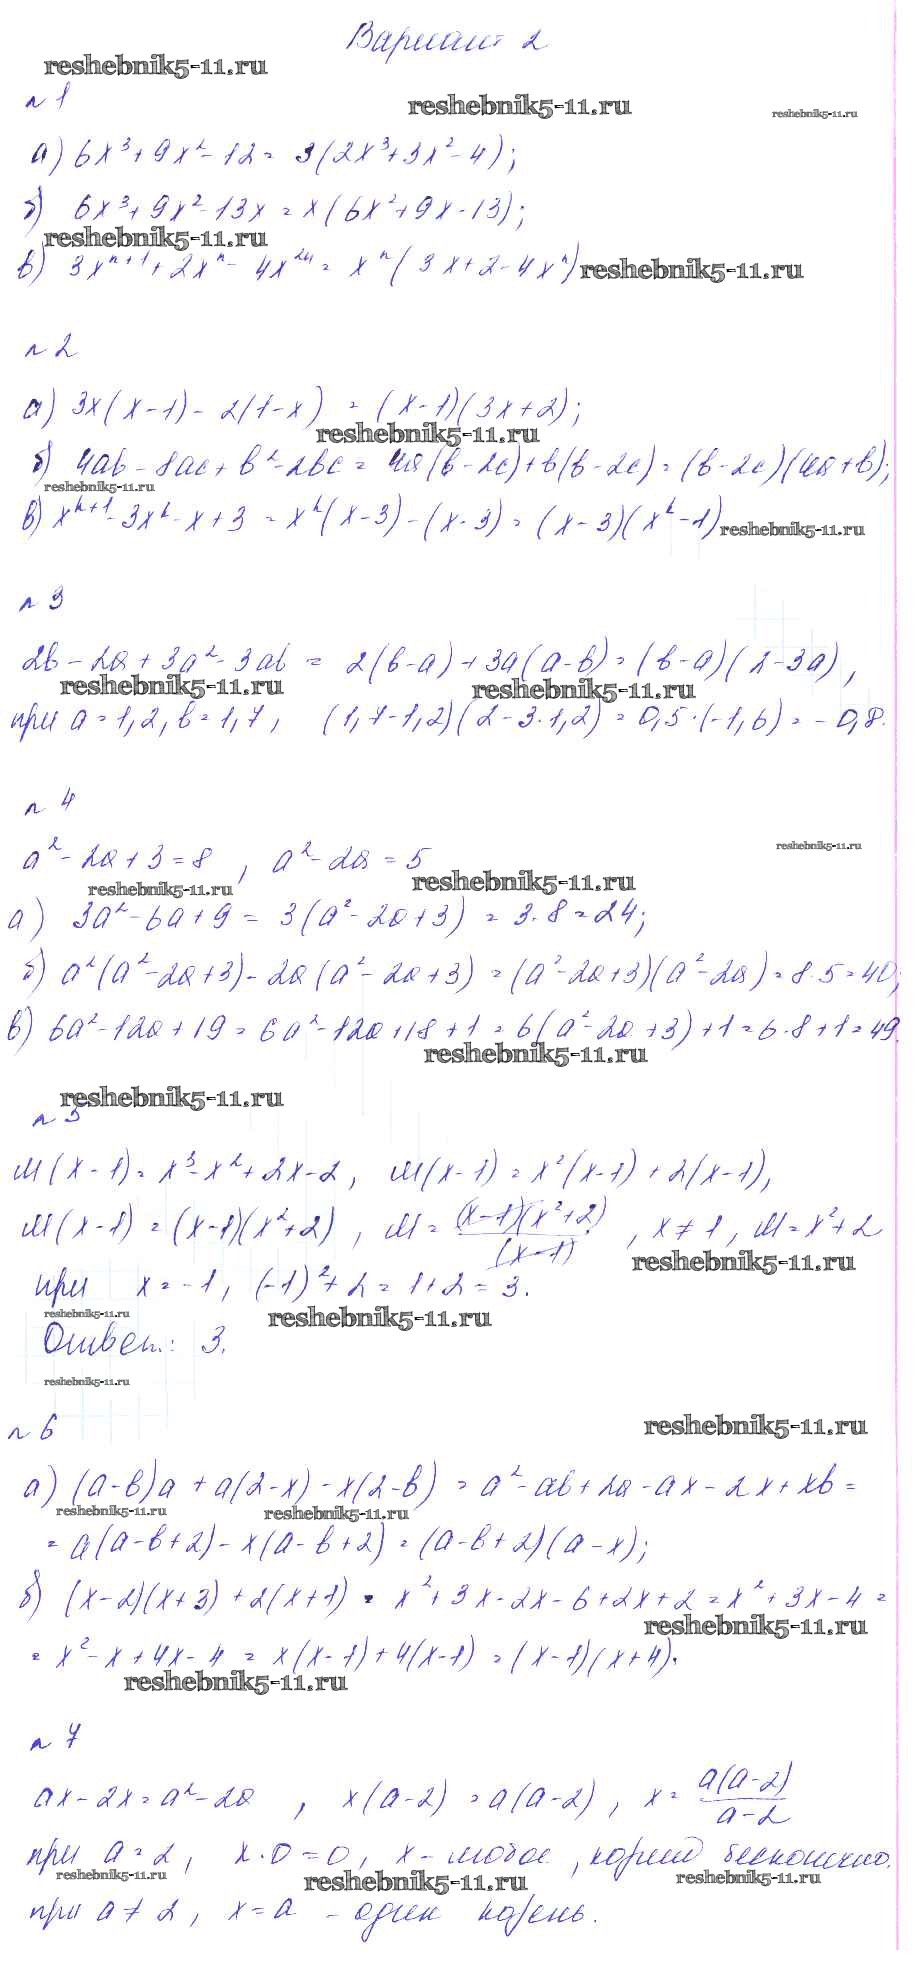 Вариант 2
reshebnik5-11.ru
n 1
reshebnik5-11.ru
reshebnik5-11.ru
а) 6x³+9x²-12= 3(2x³+3x²-4);
б) 6x³+9x²-13x=x(6x²+9x-13);
reshebnik5-11.ru
в) 3xⁿ⁺¹+2xⁿ-4x²ⁿ= xⁿ(3x+2-4xⁿ)
reshebnik5-11.ru
n 2
а) 3x(x-1)-2(1-x) = (x-1)(3x+2);
reshebnik5-11.ru
б) 4ab-8ac+b²-2bc=4a(b-2c)+b(b-2c)=(b-2c)(4a+b);
reshebnik5-11.ru
в) xᵏ⁺¹-3xᵏ-x+3 = xᵏ(x-3)-(x-3)=(x-3)(xᵏ-1)
reshebnik5-11.ru
n 3
2b-2a+3a²-3ab = 2(b-a)+3a(a-b)=(b-a)(2-3a),
reshebnik5-11.ru
reshebnik5-11.ru
при a=1,2, b=1,7, (1,7-1,2)(2-3·1,2)=0,5·(-1,6)=-0,8.
n 4
a²-2a+3=8, a²-2a=5
reshebnik5-11.ru
reshebnik5-11.ru
reshebnik5-11.ru
а) 3a²-6a+9 = 3(a²-2a+3) = 3·8=24;
б) a²(a²-2a+3)-2a(a²-2a+3)=(a²-2a+3)(a²-2a)=8·5=40;
в) 6a²-12a+19=6a²-12a+18+1=6(a²-2a+3)+1=6·8+1=49.
reshebnik5-11.ru
reshebnik5-11.ru
n 5
M(x-1)=x³-x²+2x-2, M(x-1)=x²(x-1)+2(x-1),
M(x-1)=(x-1)(x²+2), M=(x-1)(x²+2)/(x-1), x≠1, M=x²+2
reshebnik5-11.ru
при x=-1, (-1)²+2=1+2=3.
reshebnik5-11.ru
reshebnik5-11.ru
Ответ: 3.
reshebnik5-11.ru
n 6
reshebnik5-11.ru
а) (a-b)a+a(2-x)-x(2-b) = a²-ab+2a-ax-2x+xb=
reshebnik5-11.ru
reshebnik5-11.ru
=a(a-b+2)-x(a-b+2)=(a-b+2)(a-x);
б) (x-2)(x+3)+2(x+1) = x²+3x-2x-6+2x+2=x²+3x-4=
reshebnik5-11.ru
=x²-x+4x-4 = x(x-1)+4(x-1)=(x-1)(x+4).
reshebnik5-11.ru
n 7
ax-2x=a²-2a, x(a-2)=a(a-2), x=a(a-2)/a-2
при a=2, x·0=0, x-любое, корней бесконечно.
reshebnik5-11.ru
reshebnik5-11.ru
reshebnik5-11.ru
при a≠2, x=a - один корень.